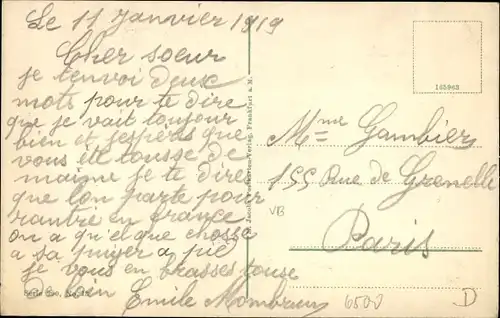 Le 11 Janvier 1919
Cher soeur
je tenvoi deux
mots pour te dire
que je vait toujour
bien et jespères que
vous ête tousse de
maime je te dire
que lon parte pour
rantré en france
on a qu'el que chosse
a sa puyer a pié
je vous en brasses touse
de loin Emile Mombrun
Serie 290, No.
Frankfurt a. M.
165963
Mme Gambier
155 Rue de Grenelle
Paris
VB
6500
D